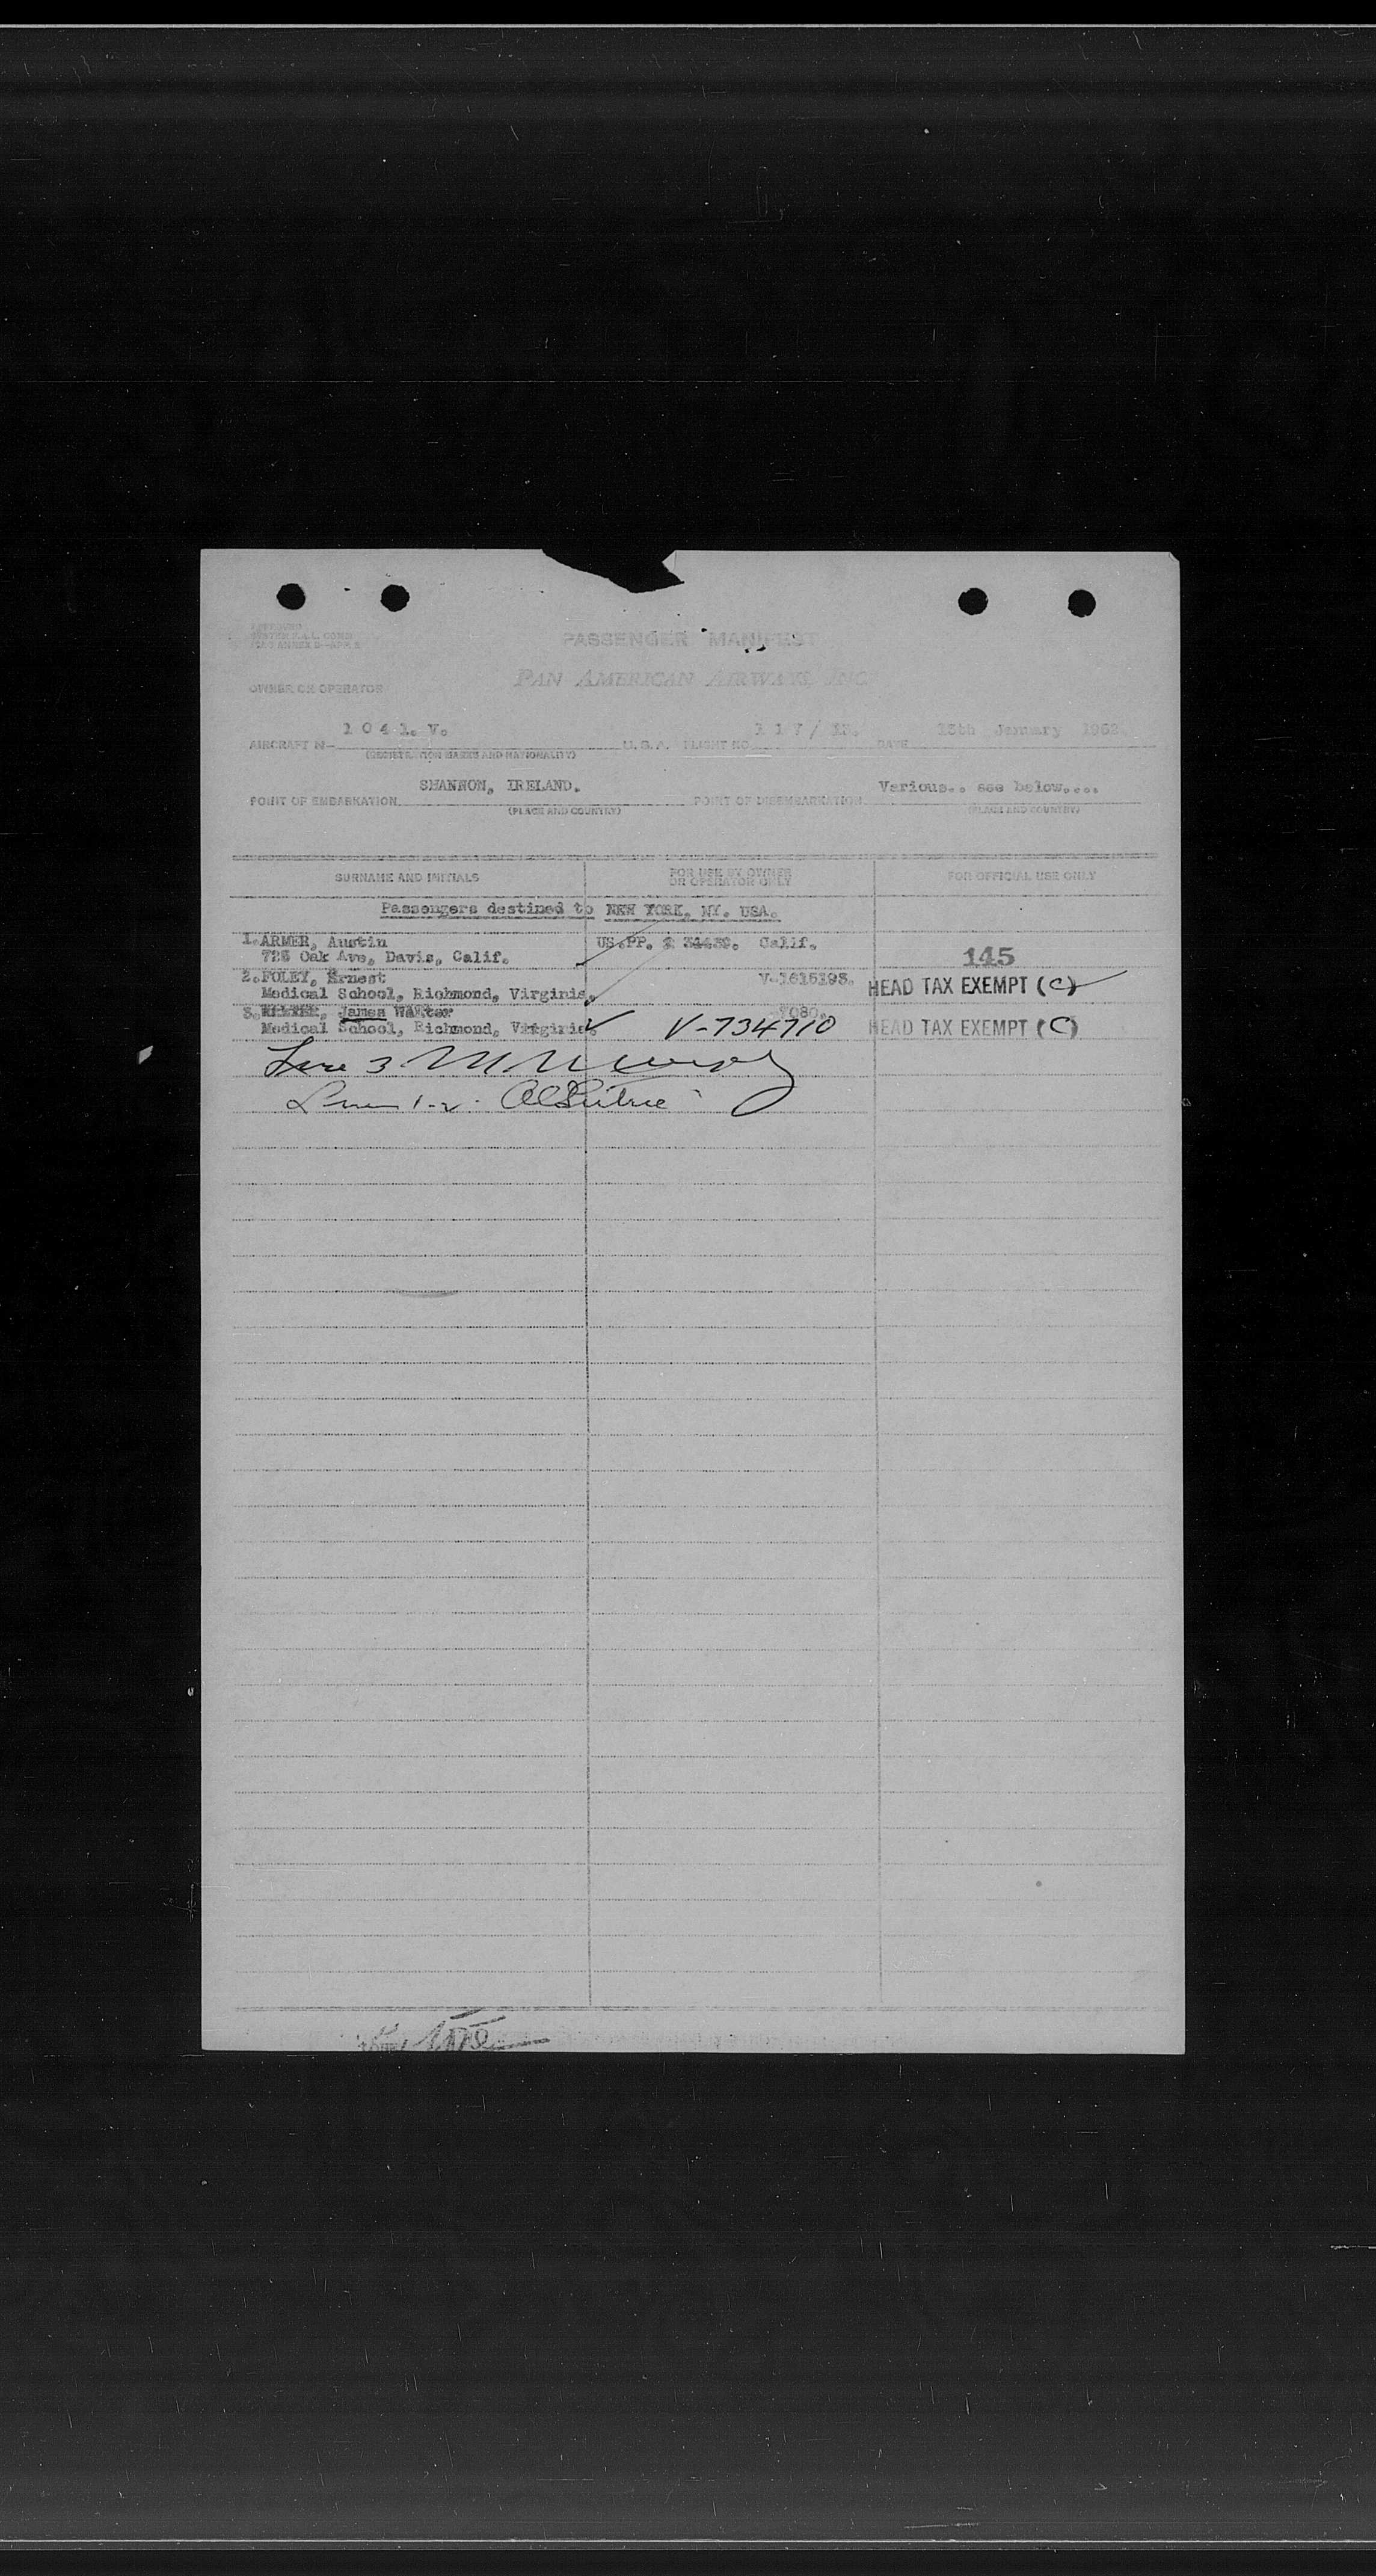 PASSENGER MANIFEST
PAN AMERICAN AIRWAYS, INC.
OWNER OR OPERATOR
AIRCRAFT N- 1 0 4 1. V. U. S. A. FLIGHT NO. 1 1 7 / DATE January 1952
(REGISTRATION MARKS AND NATIONALITY)
POINT OF EMBARKATION SHANNON, IRELAND. POINT OF DISEMBARKATION Various.. see below....
(PLACE AND COUNTRY) (PLACE AND COUNTRY)
SURNAME AND INITIALS FOR USE BY OWNER OR OPERATOR ONLY FOR OFFICIAL USE ONLY
Passengers destined to NEW YORK, NY. USA.
1. ARMER, Austin US.PP. Calif.
Oak Ave, Davis, Calif. 145
2. FOLEY, Ernest V-1615193. HEAD TAX EXEMPT (C)
Medical School, Richmond, Virginia.
3. James Walter 7080.
Medical School, Richmond, Virginia. V-734710 HEAD TAX EXEMPT (C)
Line 3
Lines 1-2.